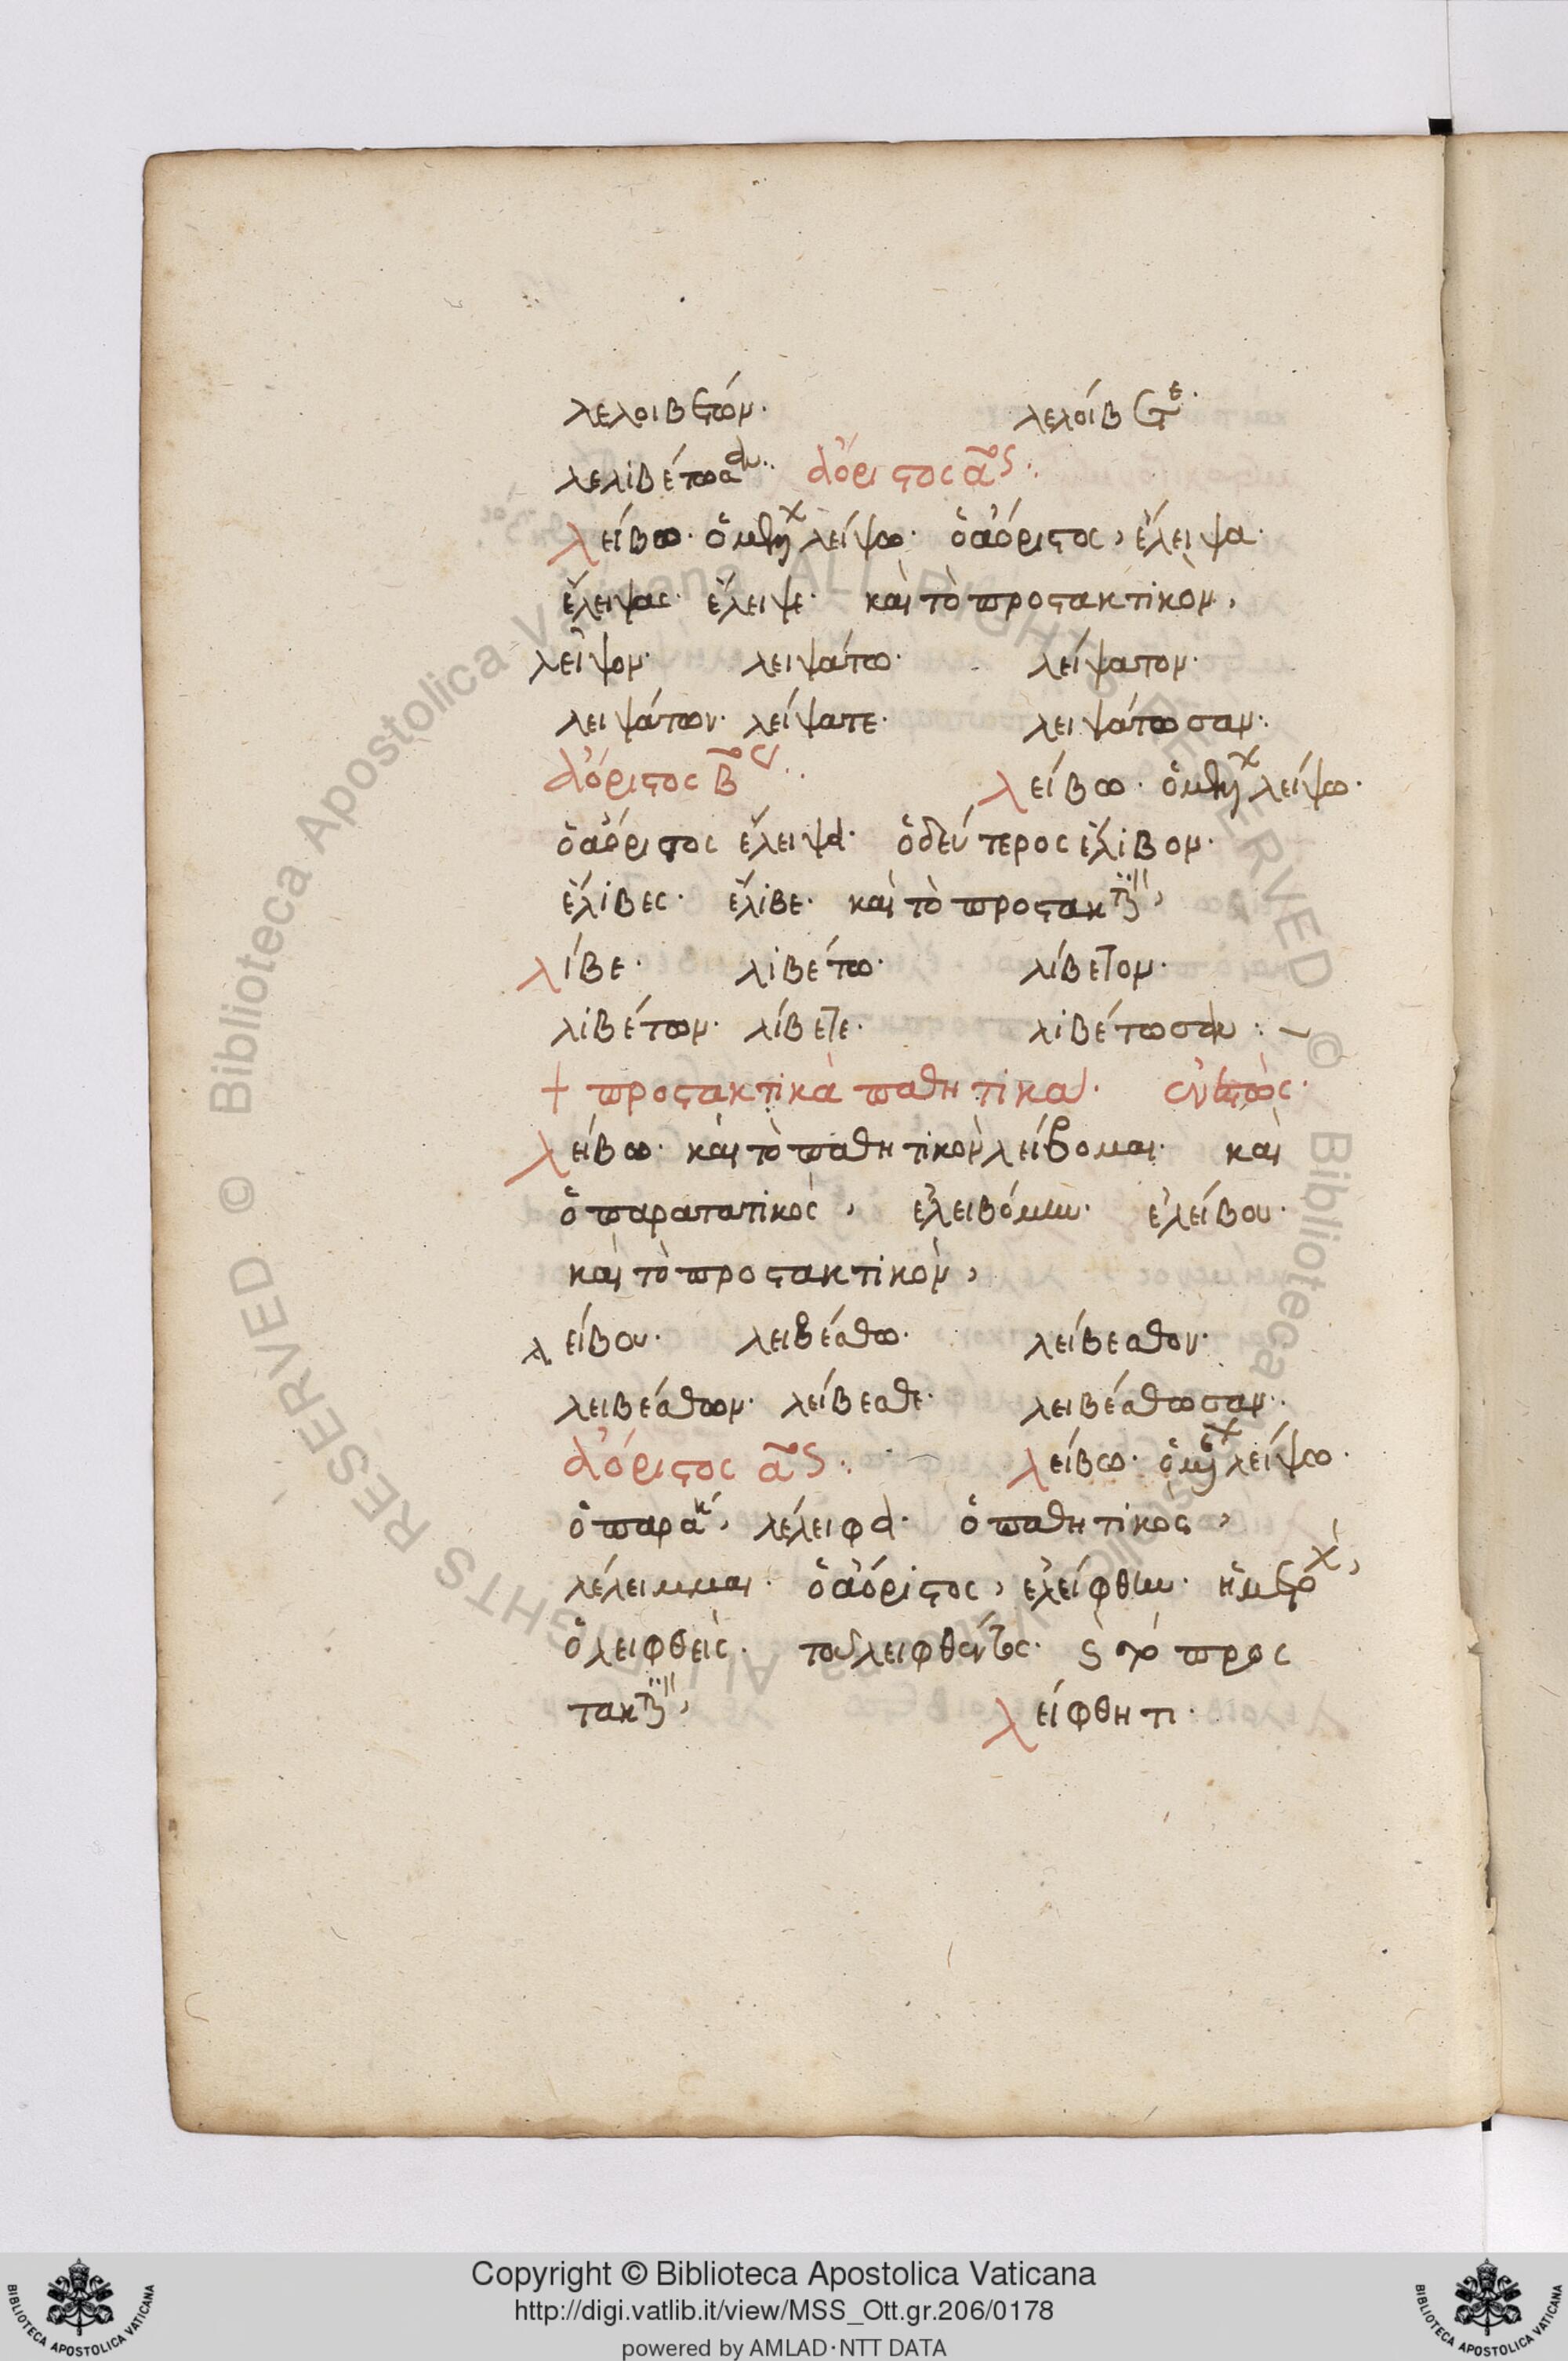 λελοιβέτων· λελοίβετε·
λελιβέτωσαν:· ἀόριστος αος:·
λείβω· ὁ μέλλων λείψω· ὁ ἀόριστος, ἔλειψα·
ἔλειψας· ἔλειψε· καὶ τὸ προστακτικὸν,
λεῖψον· λειψάτω· λείψατον·
λειψάτων· λείψατε· λειψάτωσαν:·
ἀόριστος βος:· λείβω· ὁ μέλλων λείψω·
ὁ ἀόριστος ἔλειψα· ὁ δεύτερος ἔλιβον·
ἔλιβες· ἔλιβε· καὶ τὸ προστακτικὸν,
λίβε· λιβέτω· λίβετον·
λιβέτων· λίβετε· λιβέτωσαν:~
+ προστακτικὰ παθητικά· ἐνεστώς·
λείβω· καὶ τὸ παθητικὸν λείβομαι· καὶ
ὁ παρατατικὸς, ἐλειβόμην· ἐλείβου·
καὶ τὸ προστακτικὸν,
λείβου· λειβέσθω· λείβεσθον·
λειβέσθων· λείβεσθε· λειβέσθωσαν·
ἀόριστος αος:· λείβω· ὁ μέλλων λείψω·
ὁ παρακ, λέλειφα· ὁ παθητικὸς,
λέλειμμαι· ὁ ἀόριστος, ἐλείφθην· ἡ μετοχὴ,
ὁ λειφθεὶς· τοῦ λειφθέντος· καὶ τὸ προσ
τακτικὸν, λείφθητι·
Copyright © Biblioteca Apostolica Vaticana
http://digi.vatlib.it/view/MSS_Ott.gr.206/0178
powered by AMLAD·NTT DATA